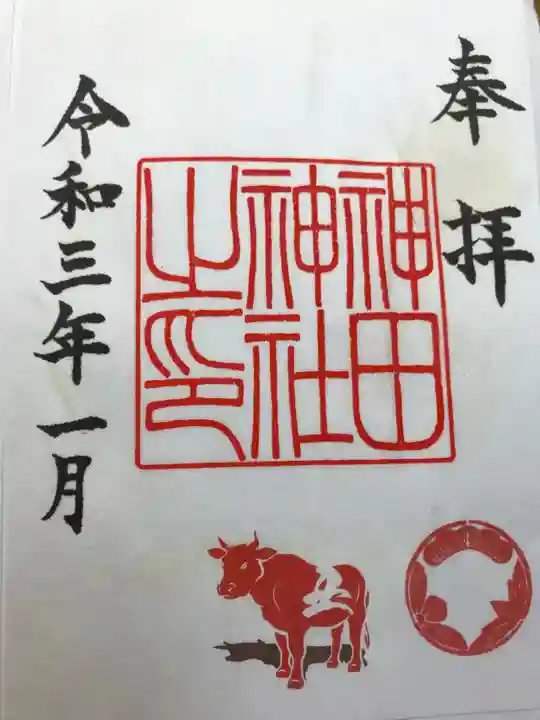 奉拝
神田
神社
之印
令和三年一月